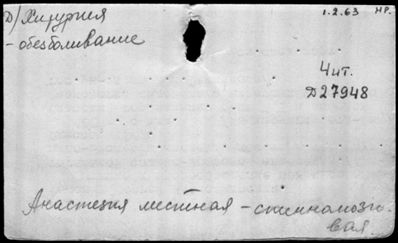 Д) Хирургия
- обезболивание
1.2.63 НР.
Чит.
Д27948
Анастезия местная - спинномозго-
вая